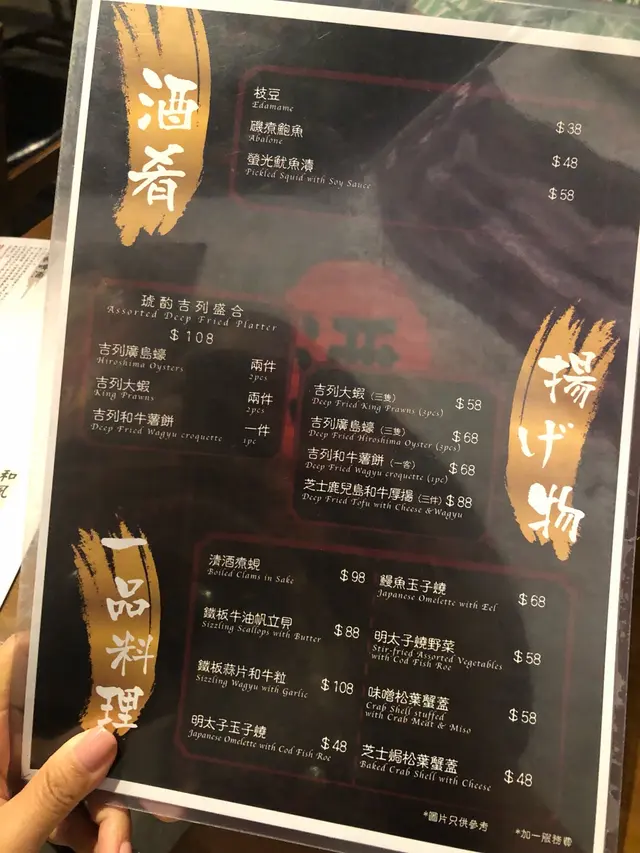 酒肴
枝豆
Edamame
$38
磯煮鮑魚
Abalone
$48
螢光魷魚漬
Pickled Squid with Soy Sauce
$58
琥酌吉列盛合
Assorted Deep Fried Platter
$108
吉列廣島蠔 兩件
Hiroshima Oysters 2pcs
吉列大蝦 兩件
King Prawns 2pcs
吉列和牛薯餅 一件
Deep Fried Wagyu croquette 1pc
揚げ物
吉列大蝦（三隻） $58
Deep Fried King Prawns (3pcs)
吉列廣島蠔（三隻） $68
Deep Fried Hiroshima Oyster (3pcs)
吉列和牛薯餅（一客） $68
Deep Fried Wagyu croquette (1pc)
芝士鹿兒島和牛厚揚（三件） $88
Deep Fried Tofu with Cheese & Wagyu
一品料理
清酒煮蜆 $98
Boiled Clams in Sake
鐵板牛油帆立貝 $88
Sizzling Scallops with Butter
鐵板蒜片和牛粒 $108
Sizzling Wagyu with Garlic
明太子玉子燒 $48
Japanese Omelette with Cod Fish Roe
鰻魚玉子燒 $68
Japanese Omelette with Eel
明太子燒野菜 $58
Stir-fried Assorted Vegetables
with Cod Fish Roe
味噌松葉蟹蓋 $58
Crab Shell stuffed
with Crab Meat & Miso
芝士焗松葉蟹蓋 $48
Baked Crab Shell with Cheese
*圖片只供參考 *加一服務費
和風